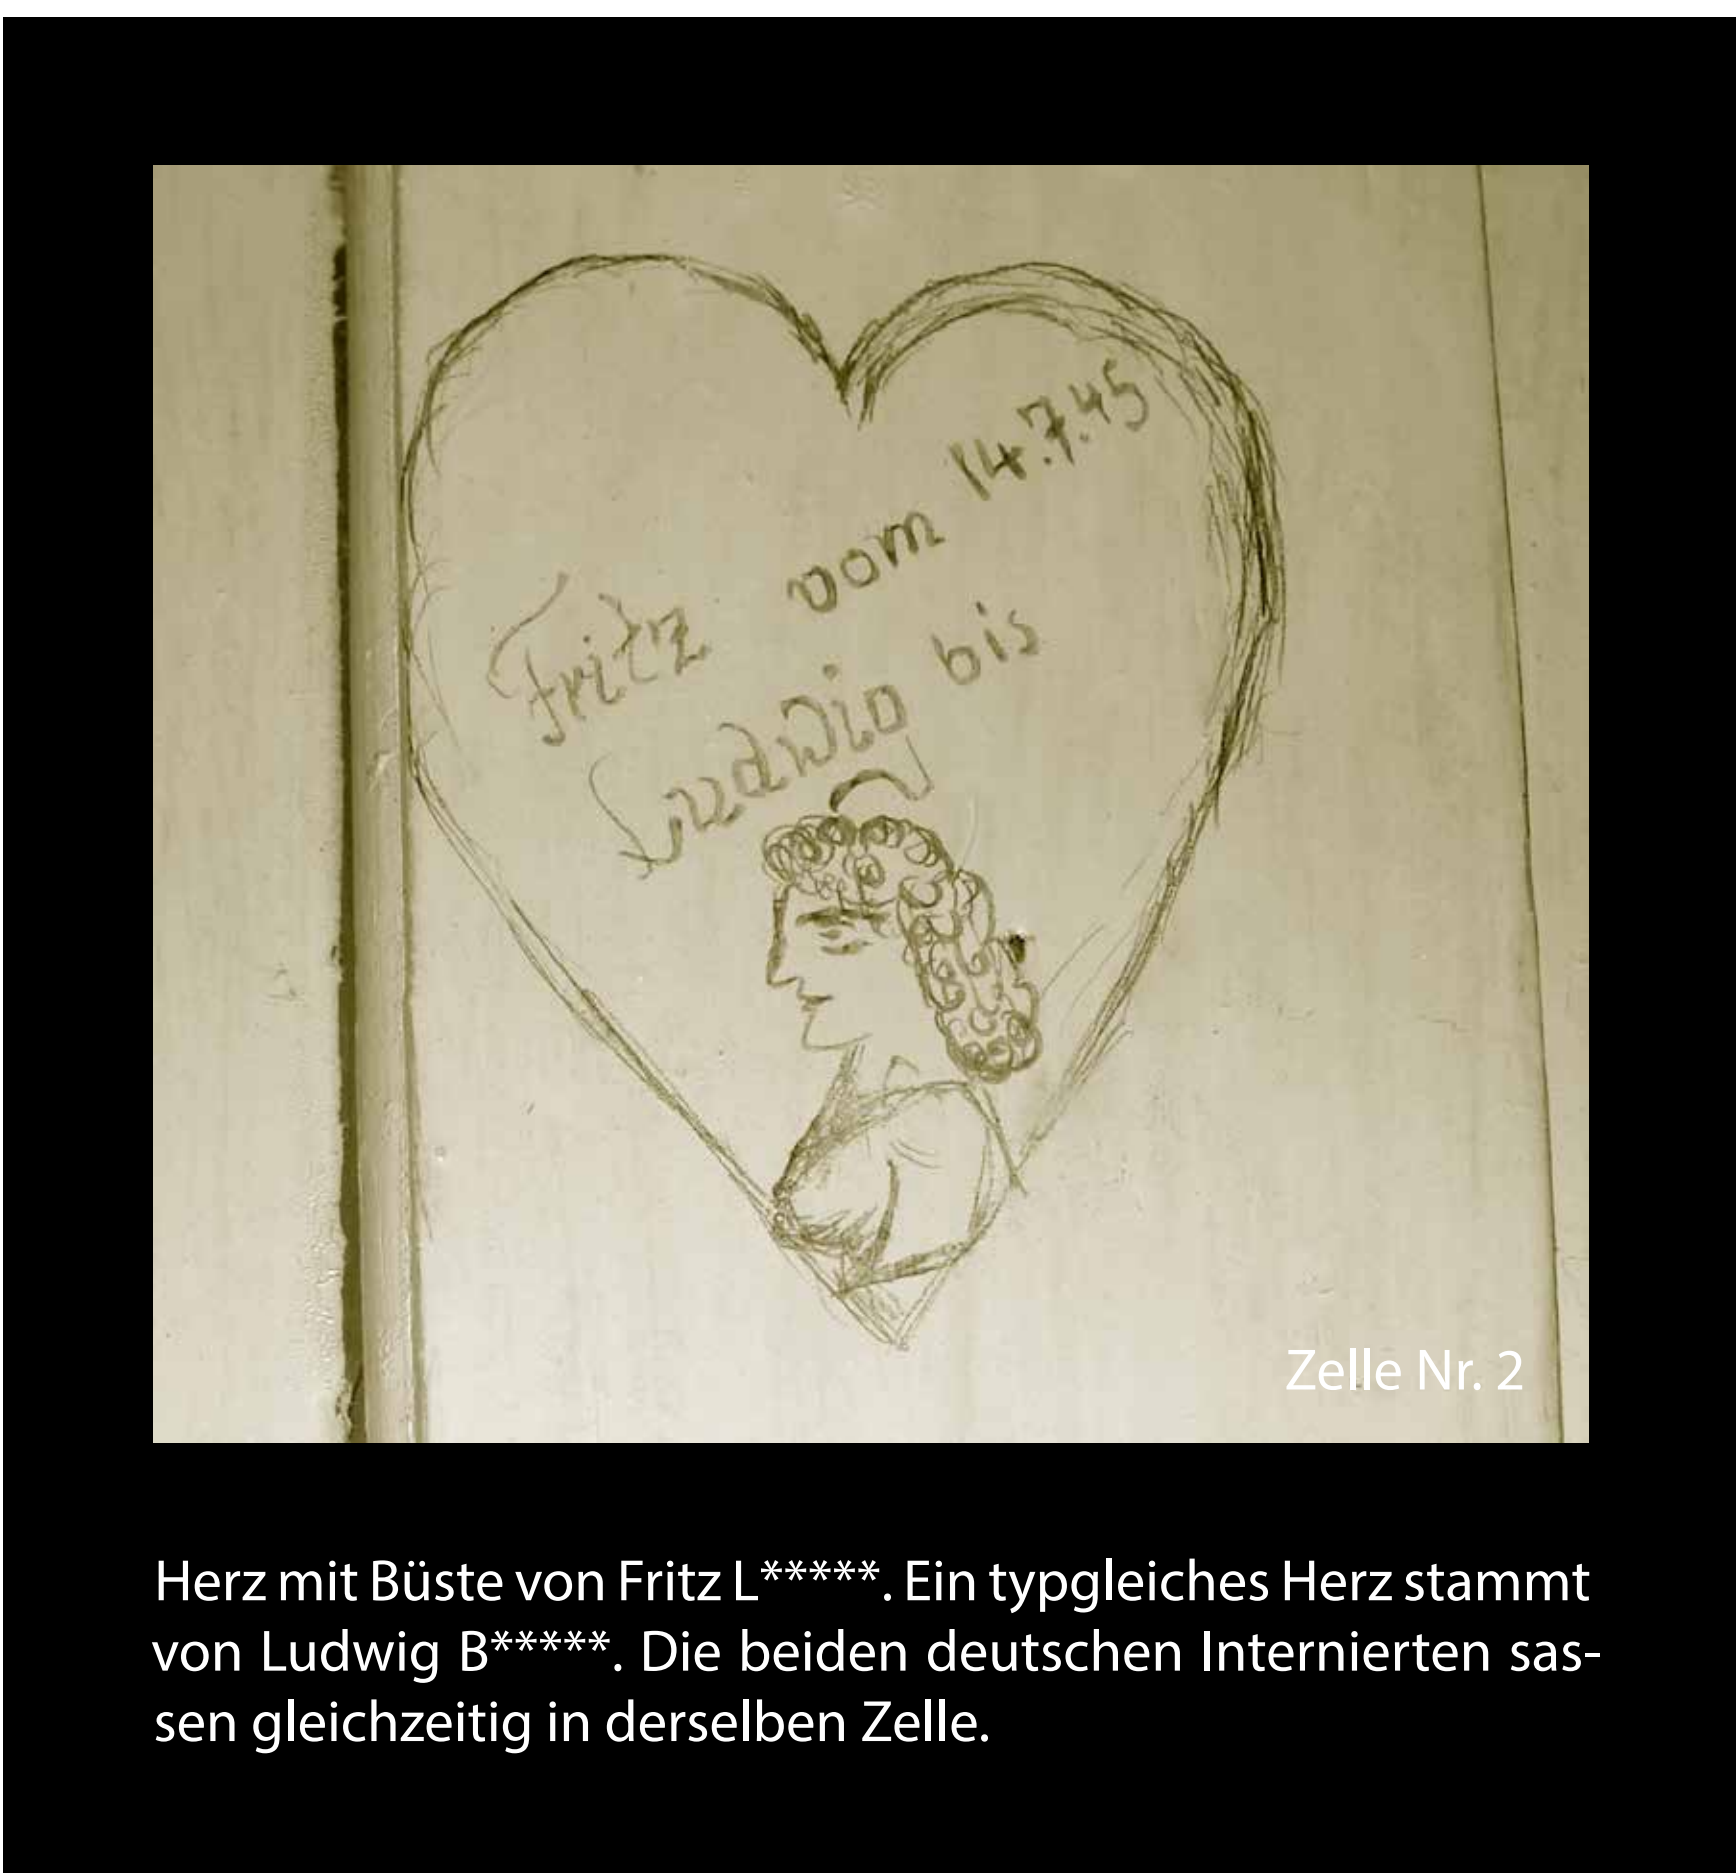 Fritz vom 14.7.45
Ludwig bis
Zelle Nr. 2
Herz mit Büste von Fritz L*****. Ein typgleiches Herz stammt
von Ludwig B*****. Die beiden deutschen Internierten sas-
sen gleichzeitig in derselben Zelle.